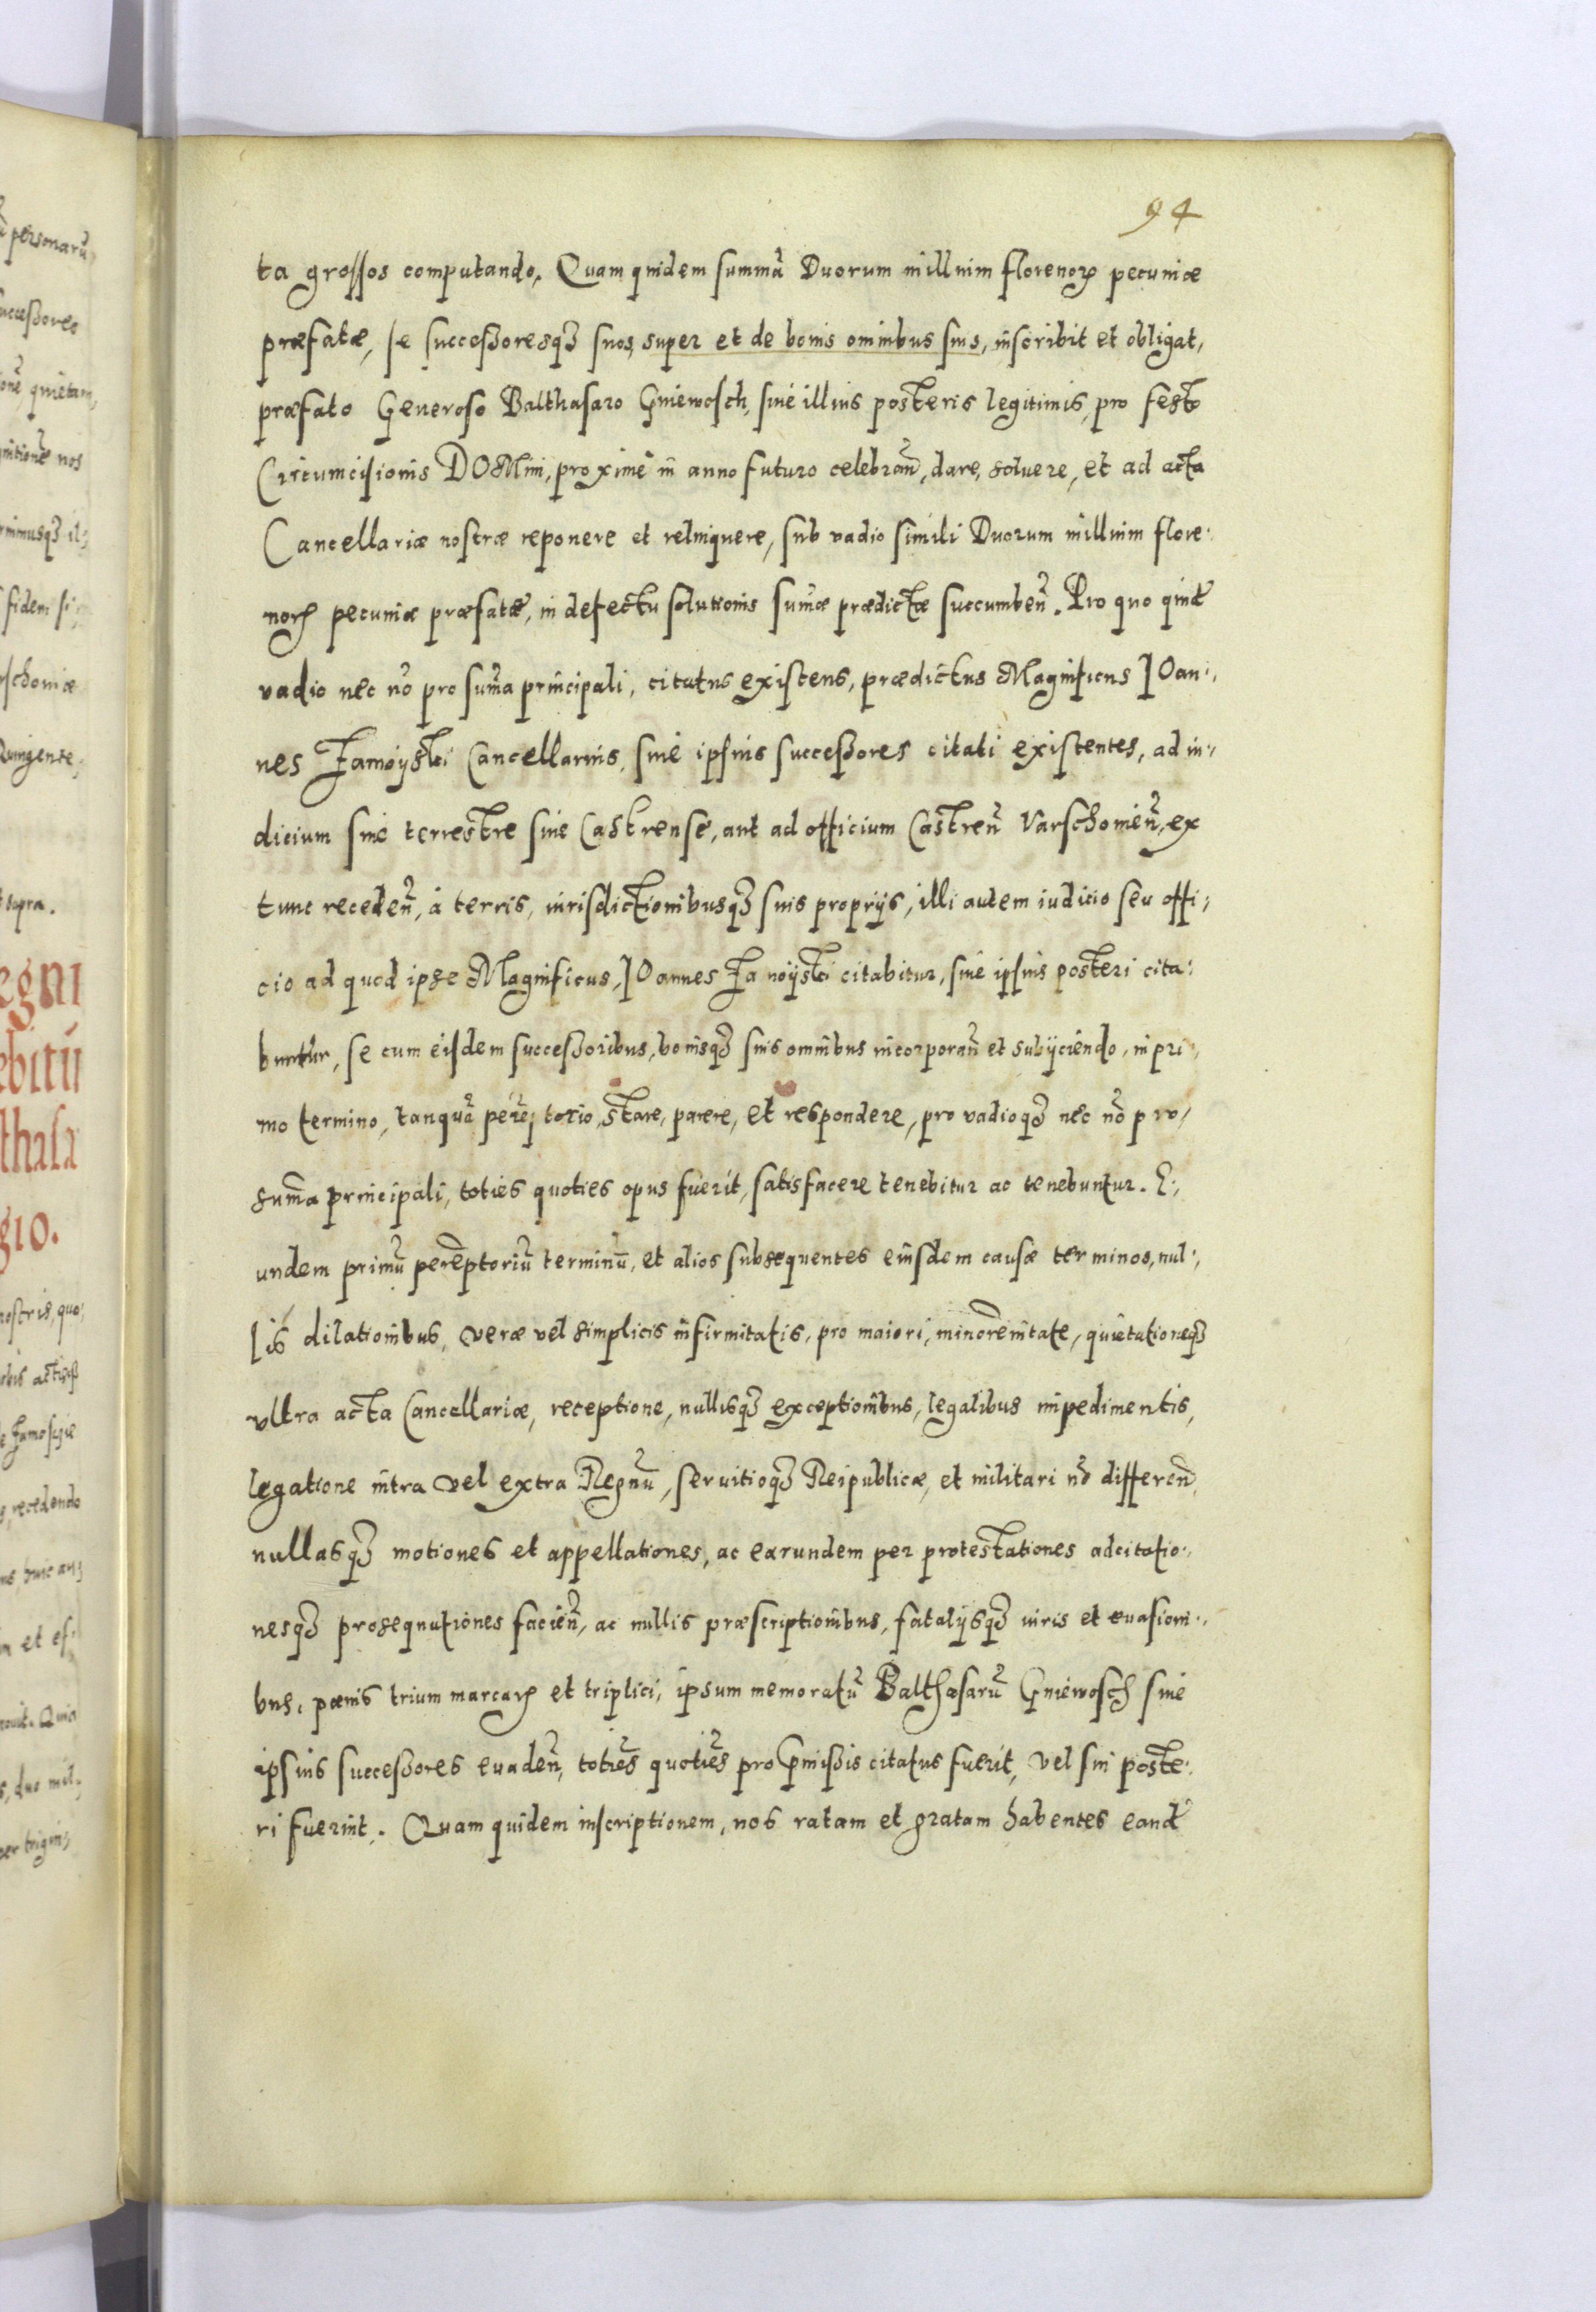 94
ta grossos computando. Quam quidem summã Duorum millium florenoꝝ pecuniæ
præfatæ, se successoresqꝫ suos, super et de bonis omnibus suis, inscribit et obligat,
præfato Generoso Balthasaro Gniewosch, siue illius posteris legitimis, pro festo
Circumcisionis DOMini, proxime in anno futuro celebrañ, dare, soluere, et ad acta
Cancellariæ nostræ reponere et relinquere, sub vadio simili Duorum millium flore:
noꝝ pecuniæ præfatæ, in defectu solutionis sum̃æ prædictæ succumbeñ. Pro quo quid̃
vadio nec nõ pro sum̃a principali, citatus existens, prædictus Magnificus IOan:,
nes Zamoÿski Cancellarius, siue ipsius successores citati existentes, ad iu:,
dicium siue terrestre siue Castrense, aut ad officium Castreñ Varschouieñ, ex
tunc recedeñ, à terris, iurisdictionibusqꝫ suis proprijs, illi autem iudicio seu offi:,
cio ad quod ipse Magnificus, IOannes Zamoÿski citabitur, siue ipsius posteri cita:
buntur, se cum eisdem successoribus, bonisqꝫ suis omnibus incorporañ et subijciendo, in pri:,
mo termino, tanquã perẽptorio, stare, parere, et respondere, pro vadioqꝫ nec nõ pro,
sum̃a principali, toties quoties opus fuerit, satisfacere tenebitur ac tenebuntur. E:,
undem primũ perẽptoriũ terminũ, et alios subsequentes eiusdem causæ terminos, nul:,
lis dilationibus, veræ vel simplicis infirmitatis, pro maiori, minorẽnitate, quietationeqꝫ
vltra acta Cancellariæ, receptione, nullisqꝫ exceptionibus, legalibus impedimentis,
legatione intra vel extra Regnũ, seruitioqꝫ Reipublicæ, et militari nõ differeñ,
nullasqꝫ motiones et appellationes, ac earundem per protestationes adcitatio:,
nesqꝫ prosequutiones facieñ, ac nullis præscriptionibus, fatalijsqꝫ iuris et euasioni:,
bus, pœnis trium marcaꝝ et triplici, ipsum memoratũ Balthasarũ Gniewosch siue
ipsius successores euadeñ, toties quoties pro p̃missis citatus fuerit, vel sui poste:
ri fuerint. Quam quidem inscriptionem, nos ratam et gratam habentes eand̃